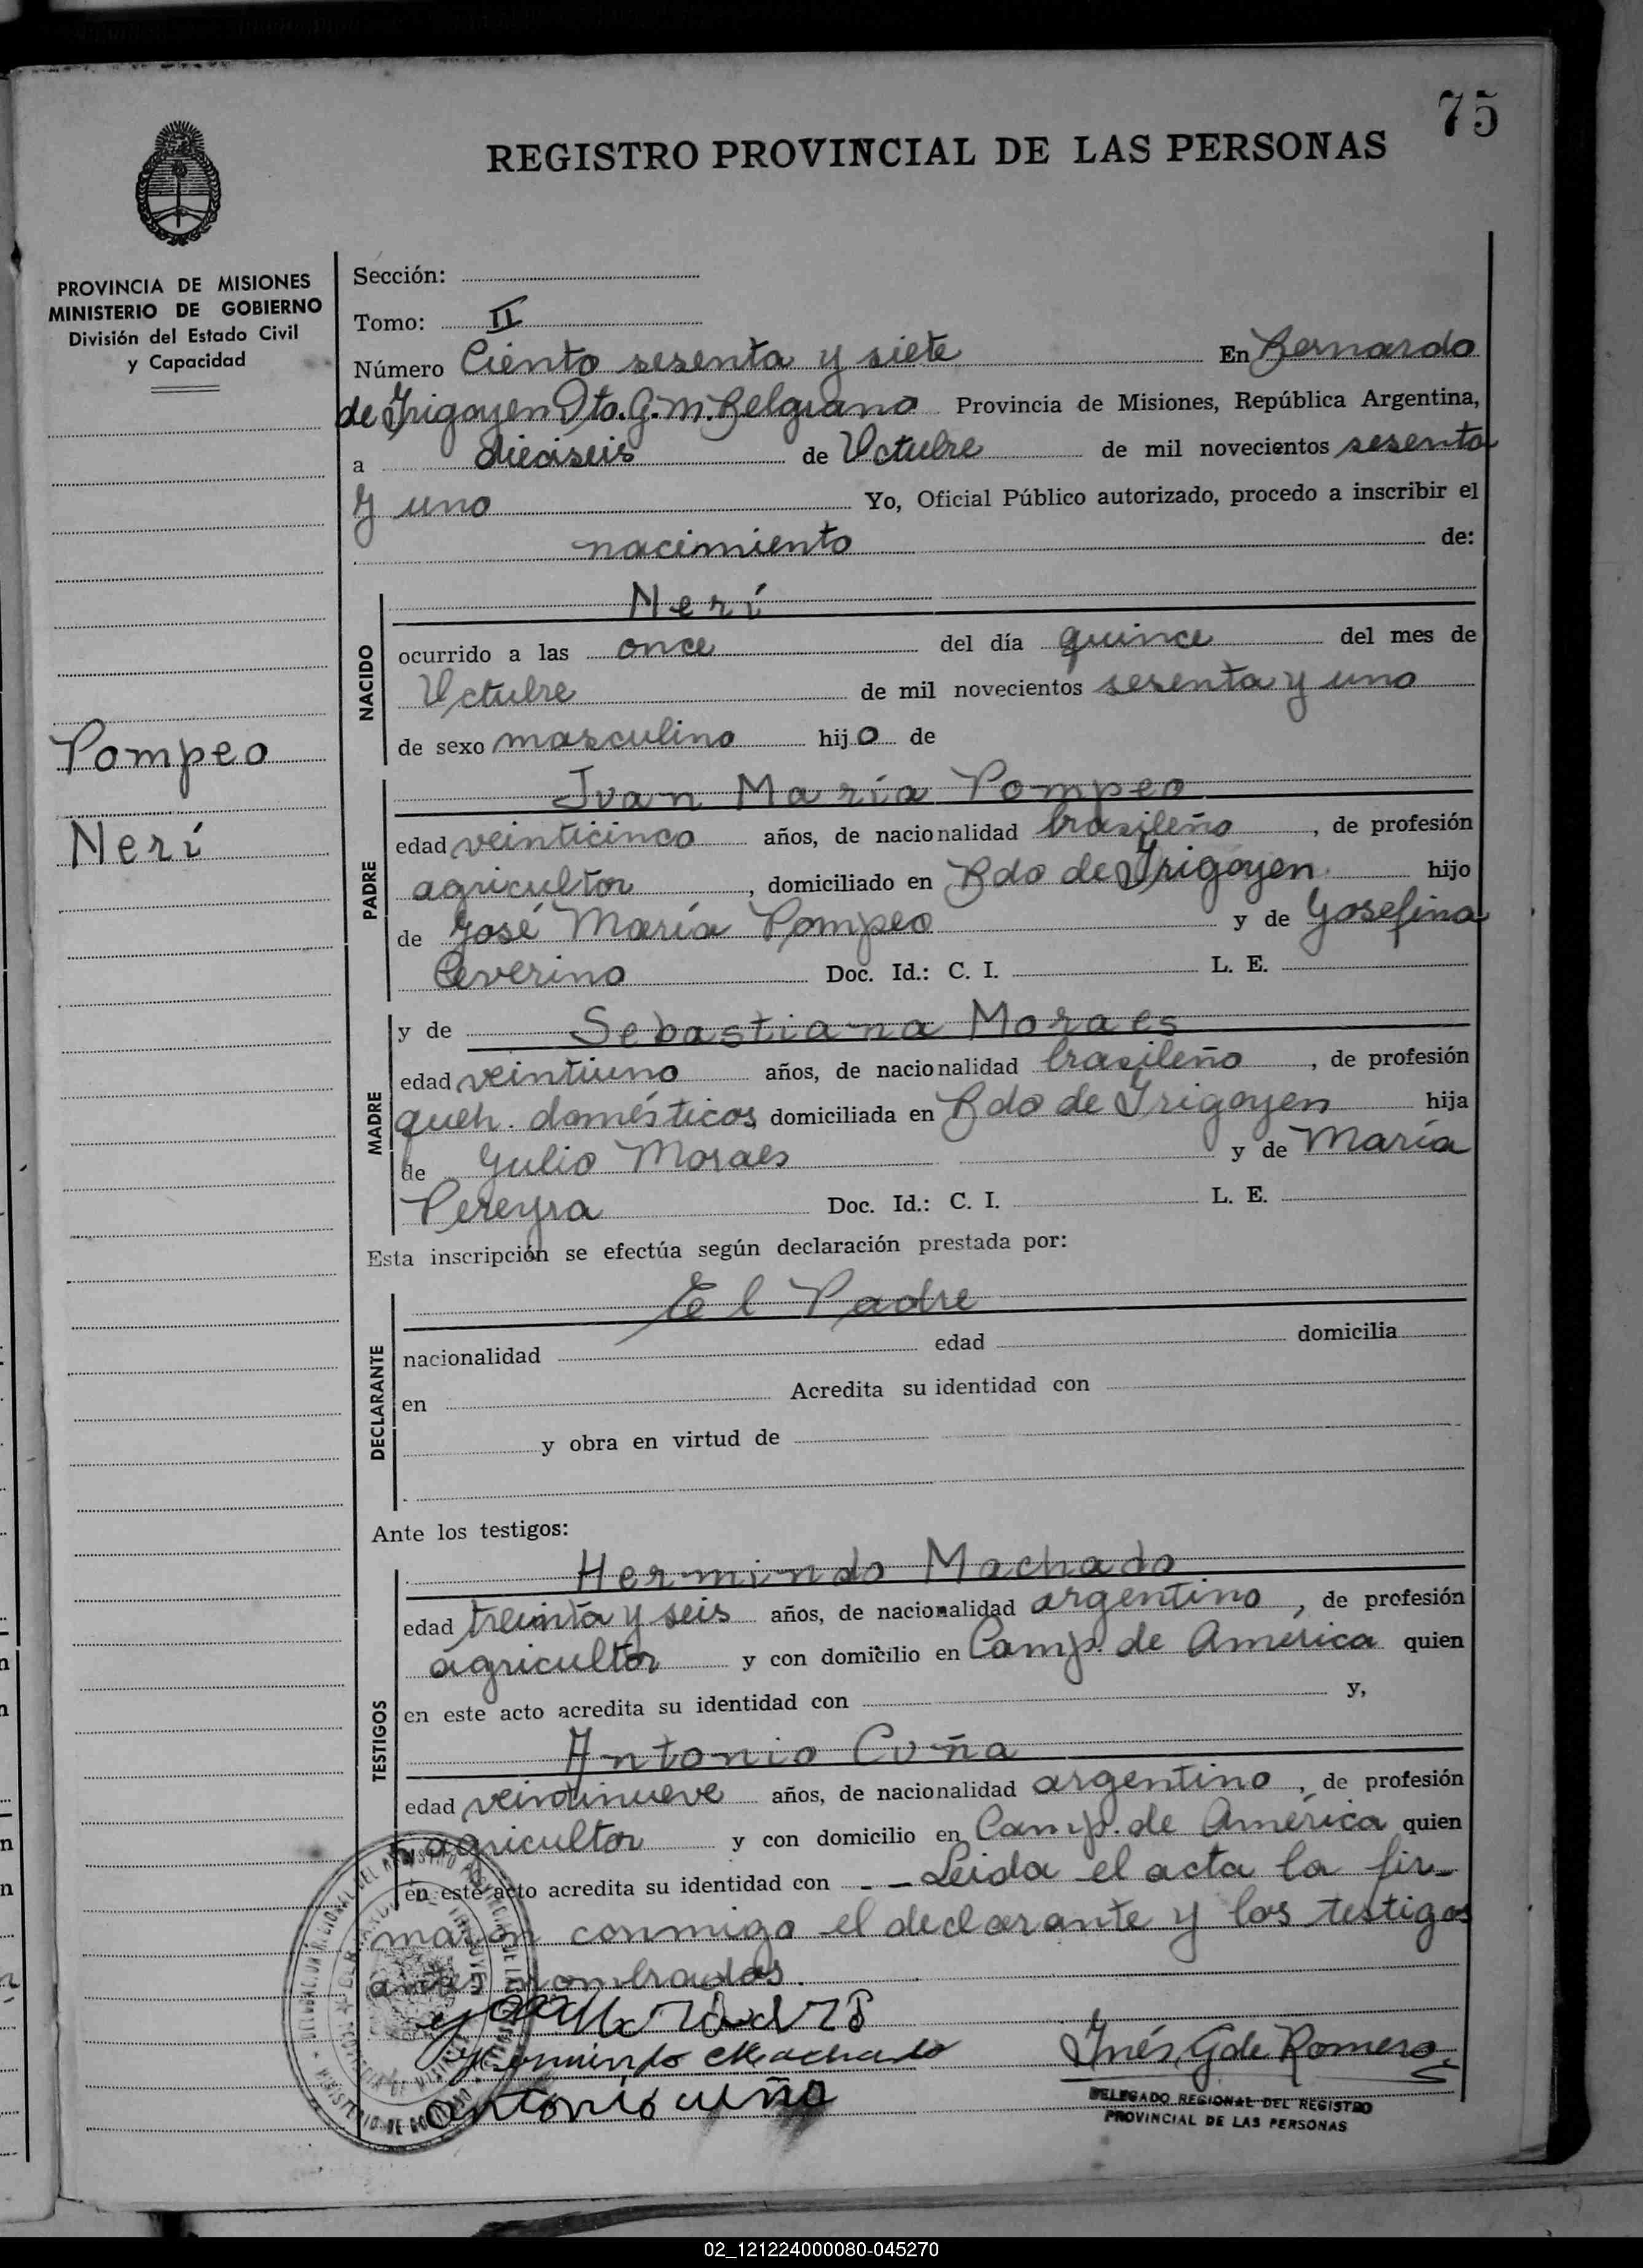 75
REGISTRO PROVINCIAL DE LAS PERSONAS
PROVINCIA DE MISIONES
MINISTERIO DE GOBIERNO
División del Estado Civil
y Capacidad
Pompeo
Neri
Sección:
Tomo: II
Número Ciento sesenta y siete En Bernardo
de Yrigoyen Dto. G. M. Belgrano Provincia de Misiones, República Argentina,
a dieciseis de Octubre de mil novecientos sesenta
y uno Yo, Oficial Público autorizado, procedo a inscribir el
nacimiento de:
NACIDO
Neri
ocurrido a las once del día quince del mes de
Octubre de mil novecientos sesenta y uno
de sexo masculino hijo de
PADRE
Juan María Pompeo
edad veinticinco años, de nacionalidad brasileño, de profesión
agricultor, domiciliado en Bdo de Yrigoyen hijo
de José María Pompeo y de Josefina
Ceverino Doc. Id.: C. I. L. E.
MADRE
y de Sebastiana Moraes
edad veintiuno años, de nacionalidad brasileño, de profesión
queh. domésticos, domiciliada en Bdo de Yrigoyen hija
de Julio Moraes y de María
Pereyra Doc. Id.: C. I. L. E.
Esta inscripción se efectúa según declaración prestada por:
DECLARANTE
El Padre
nacionalidad edad domicilia
en Acredita su identidad con
y obra en virtud de
Ante los testigos:
TESTIGOS
Hermindo Machado
edad treinta y seis años, de nacionalidad argentino, de profesión
agricultor y con domicilio en Camp. de América quien
en este acto acredita su identidad con y,
Antonio Cuña
edad veintinueve años, de nacionalidad argentino, de profesión
agricultor y con domicilio en Camp. de América quien
en este acto acredita su identidad con -- Leida el acta la fir-
maron conmigo el declarante y los testigos
antes nombrados.
Hermindo Machado
Antonio cuña
Inés G de Romero
DELEGADO REGIONAL DEL REGISTRO
PROVINCIAL DE LAS PERSONAS
02_121224000080-045270